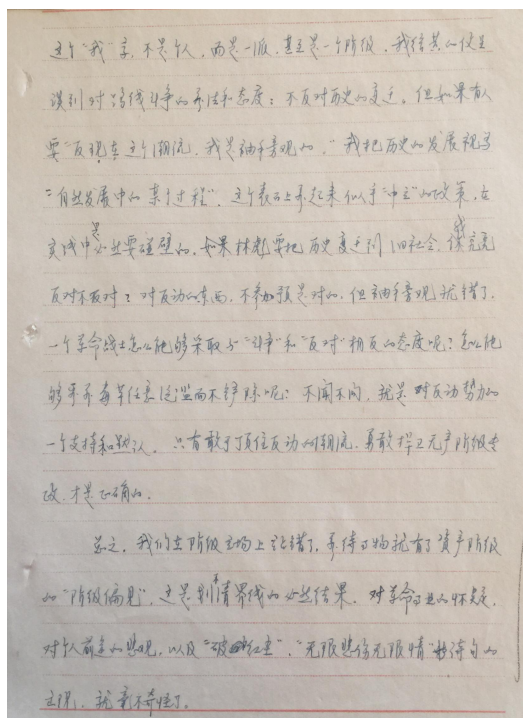 这个“我”字，不是个人，而是一派，甚至是一个阶级，我给其的仗里
谈到对路线斗争的看法和态度：不反对历史的变迁。但如果有人
要“反现在这个潮流，我是袖手旁观的。”我把历史的发展视为
“自然发展中的某个过程”。这个表面上看起来似乎“中立”的政策，在
实践中是必然要碰壁的，如果林彪要把历史变迁到旧社会，我究竟
反对不反对？对反动的东西，不参加预是对的，但袖手旁观就错了，
一个革命战士怎么能够采取与“斗争”和“反对”相反的态度呢？怎么能
够看着毒草任意泛滥而不铲除呢？不闻不问，就是对反动势力的
一个支持和默认。只有敢于顶住反动的潮流，勇敢捍卫无产阶级专
政，才是正确的。
总之，我们在阶级立场上站错了，看待事物就有了资产阶级
的“阶级偏见”，这是划不清界线的必然结果。对革命事业的怀疑，
对个人前途的悲观，以及“破红尘”，“无限悲伤无限情”诗句的
出现，就毫不奇怪了。